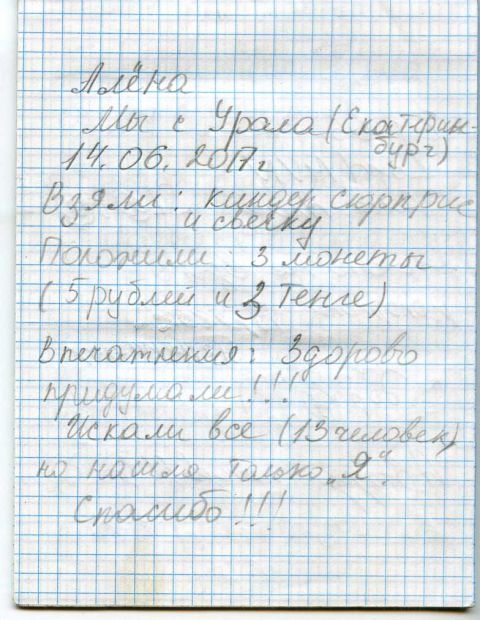 Алёна
Мы с Урала (Екатерин-
бург)
14.06.2017г
Взяли: киндер сюрприс
и свечку
Положили: 3 монеты
(5 рублей и 3 Тенге)
Впечатления: Здорово
придумали!!!
Искали все (13 человек)
но нашла только "Я".
Спасибо!!!